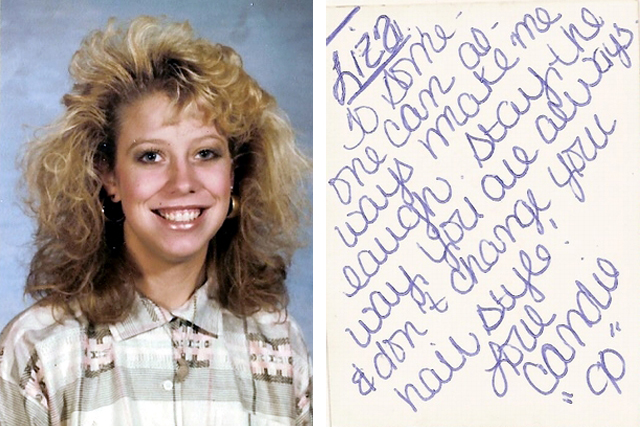 Lizz,
To some-
one can al-
ways make me
laugh. Stay the
way you are always
& don't change your
hair style.
Love
Candie
"90"